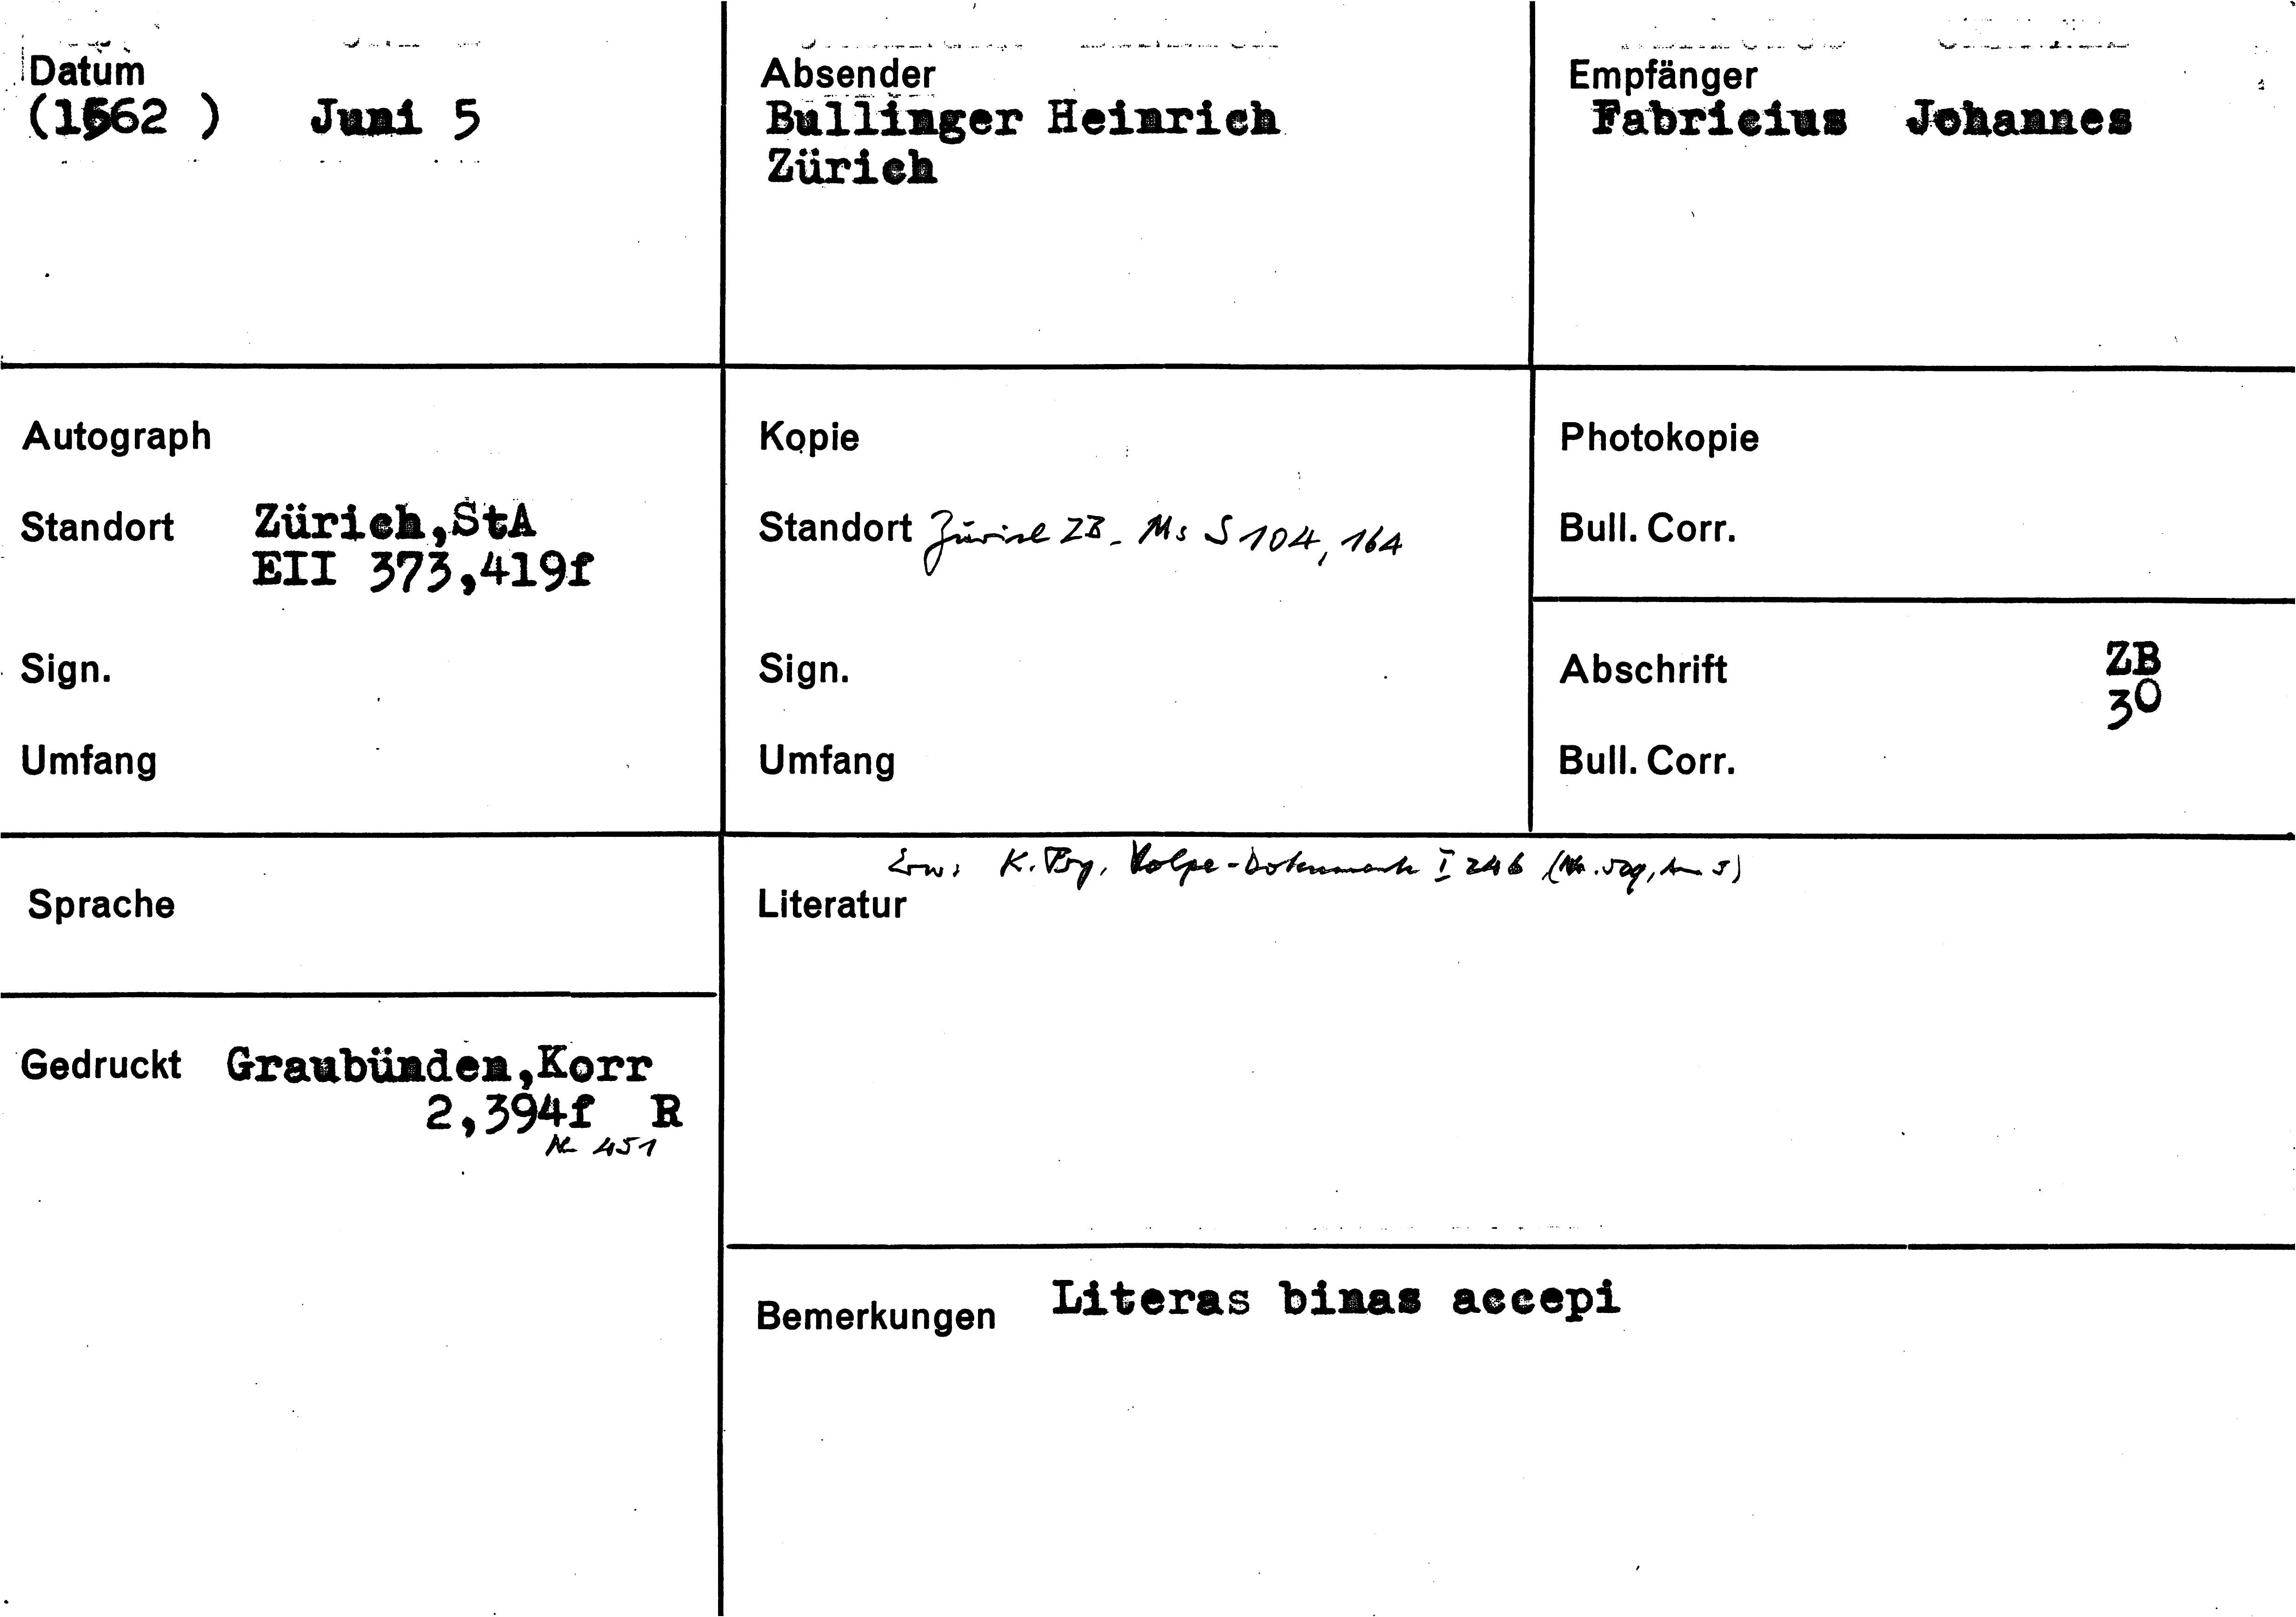 Datum
(1562 ) Juni 5
Absender
Bullinger Heinrich
Zürich
Empfänger
Fabricius Johannes
Autograph
Standort Zürich,StA
EII 373,419f
Sign.
Umfang
Kopie
Standort Zürich ZB - Ms S 104, 164
Sign.
Umfang
Photokopie
Bull. Corr.
Abschrift ZB
30
Bull. Corr.
Sprache
Gedruckt Graubünden,Korr
2,394f R
Nr 451
Erw: K. Volpe-Dokumente I 246
Literatur
Bemerkungen Literas binas accepi